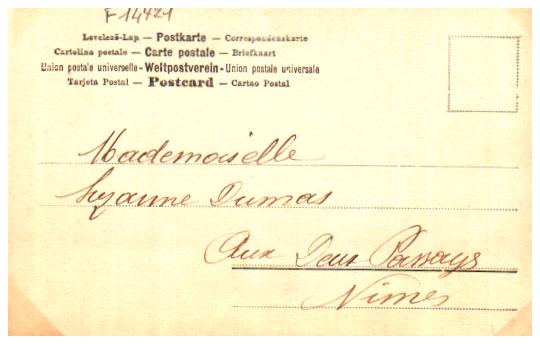 F 14421
Levelező-Lap — Postkarte — Correspondenzkarte
Cartolina postale — Carte postale — Briefkaart
Union postale universelle - Weltpostverein - Union postale universale
Tarjeta Postal — Postcard — Cartao Postal
Mademoiselle
Suzanne Dumas
Aux Deux Passages
Nimes